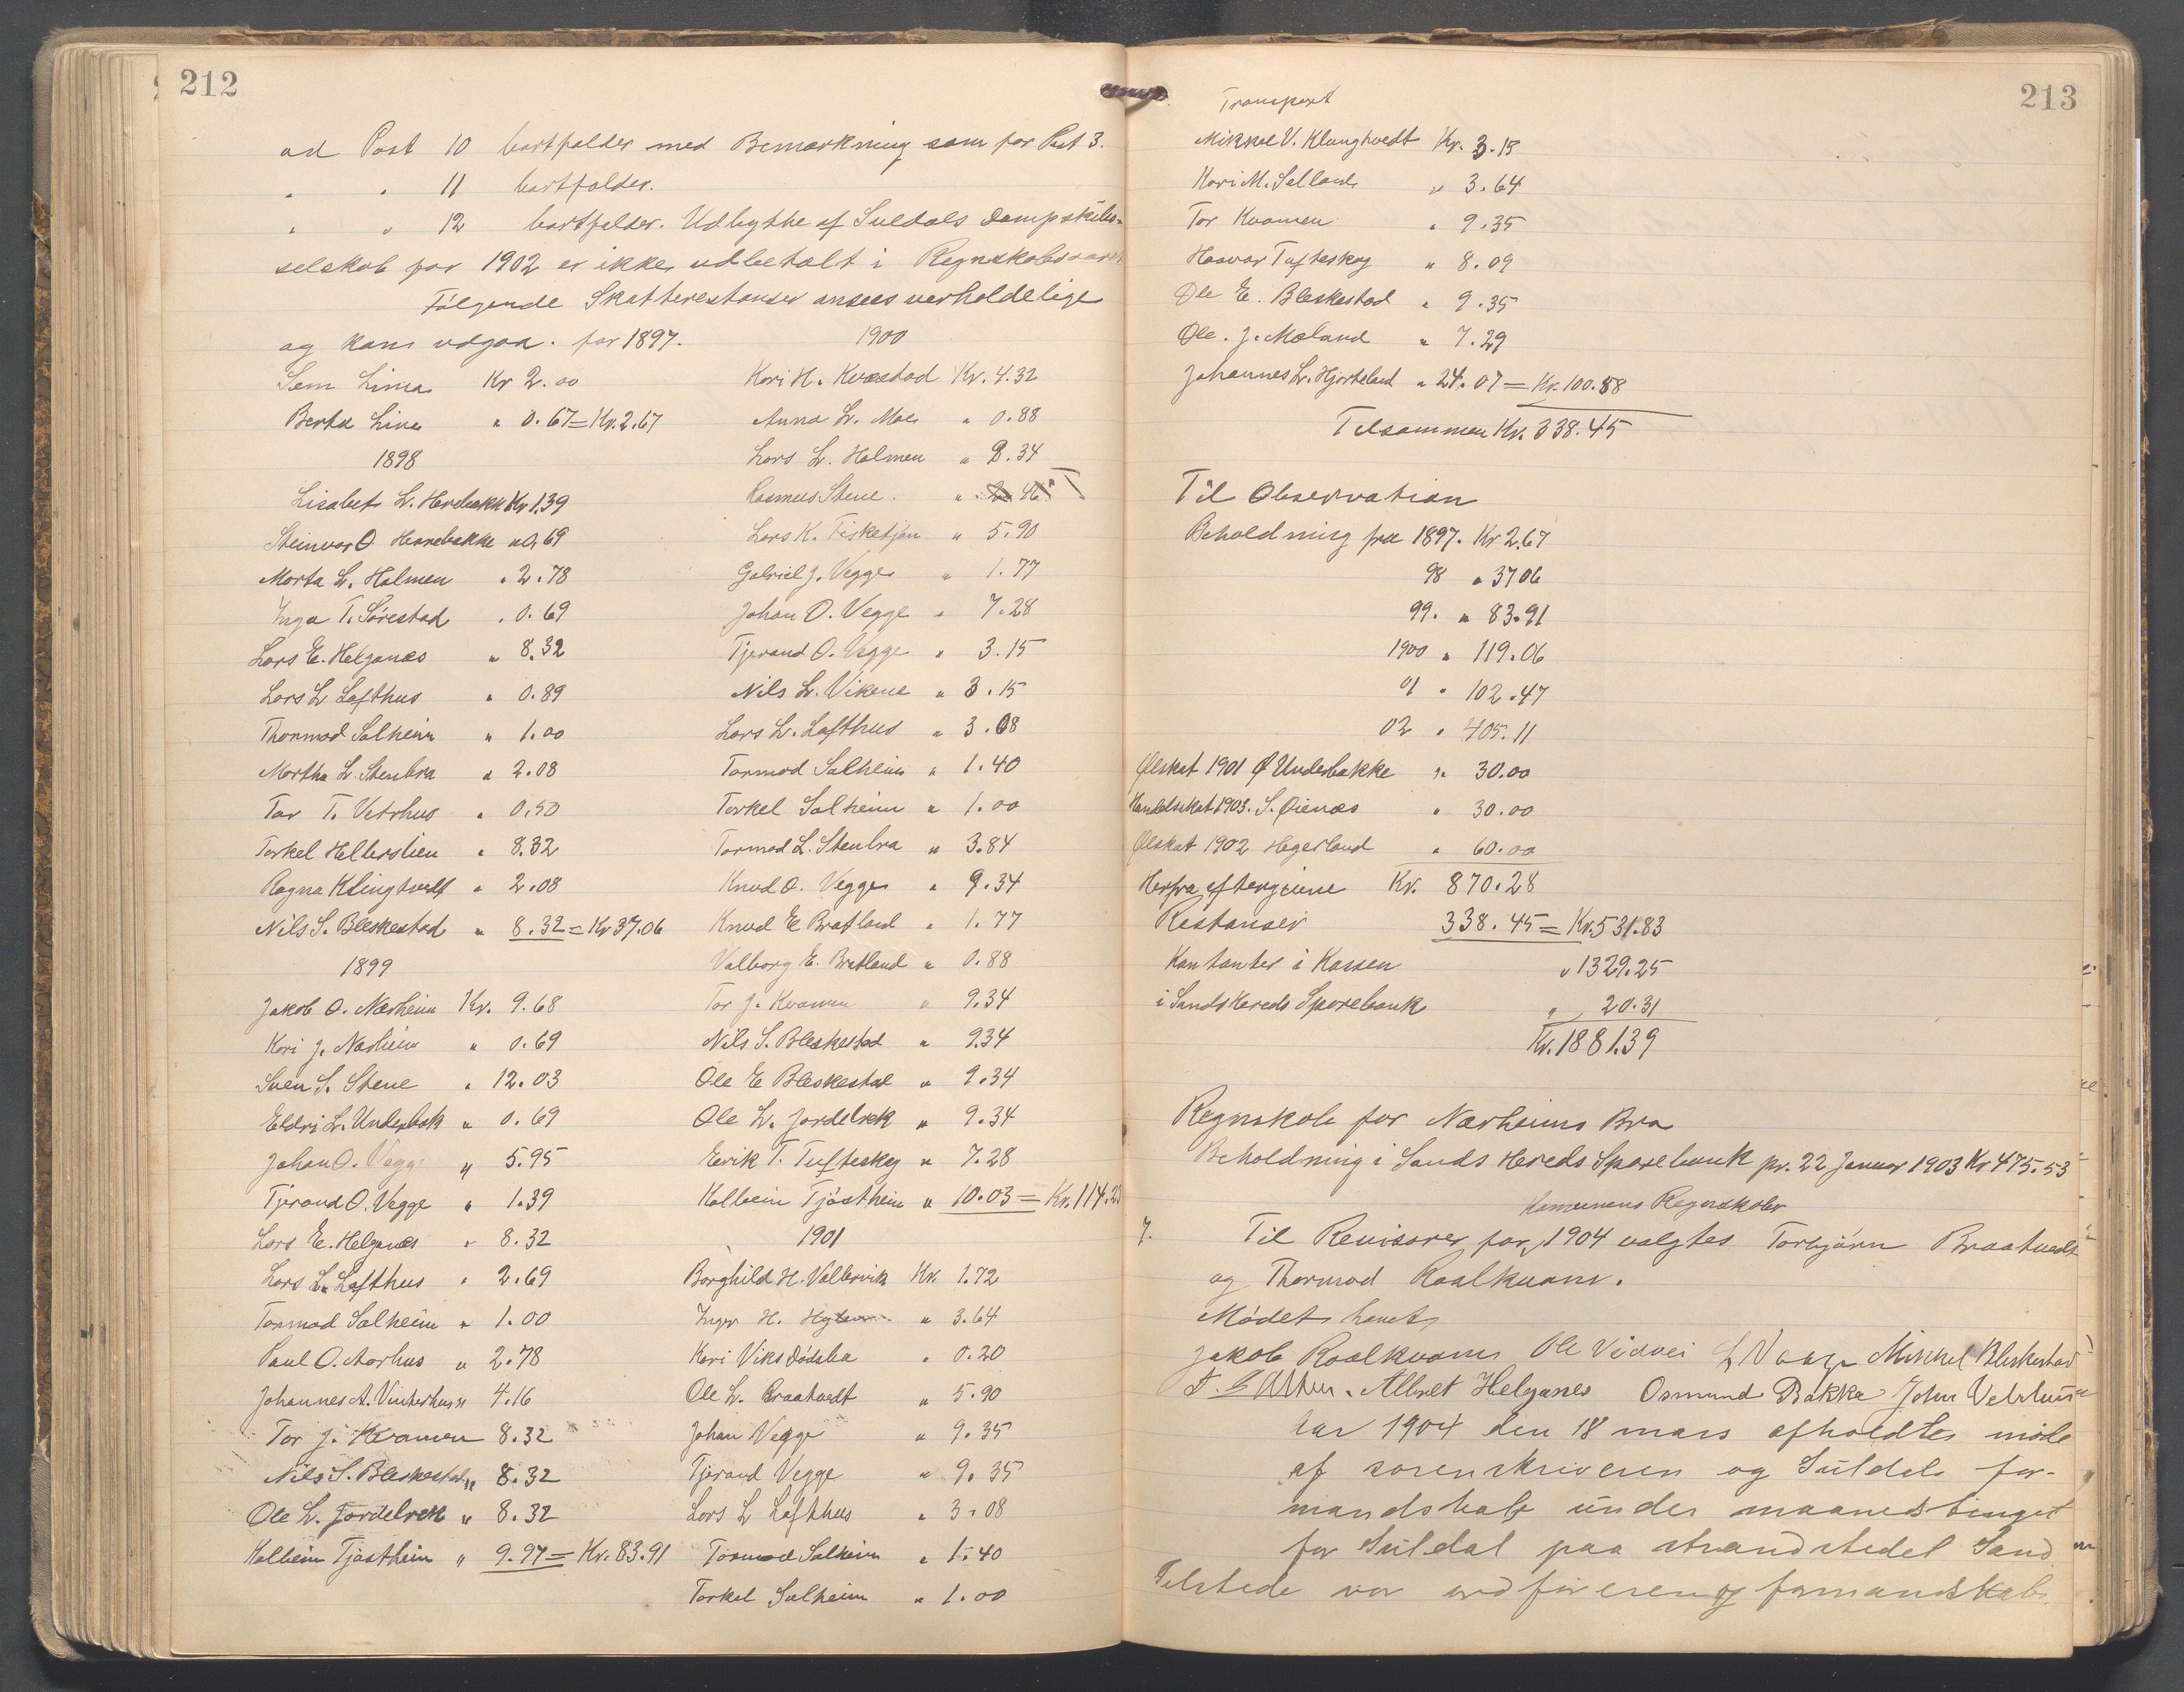 212
ad Post 10 bortfalder med Bemærkning som for Post 3.
" " 11 bortfalder.
" " 12 bortfalder. Udbytte af Suldals Dampskibs-
selskab for 1902 er ikke udbetalt i Regnskabsaaret
Følgende Skatterestanser ansees uerholdelige
og kan udgaa. for 1897.
Sem Lima Kr 2.00
Berta Lima " 0.67 = Kr. 2.67
1898
Lisabet L. Herabakk Kr 1.39
Steinvor O Herabakke " 0.69
Marta L. Holmen " 2.78
Inga T. Sørestad " 0.69
Lars E. Helganes " 8.32
Lars L Lofthus " 0.89
Thormod Solheim " 1.00
Martha L. Stenbra " 2.08
Tor T. Vetrhus " 0.50
Torkel Hellerslien " 8.32
Ragna Klingtvedt " 2.08
Nils S. Bleskestad " 8.32 = Kr 37.06
1899
Jakob O. Nærheim Kr. 9.68
Kari J. Nærheim " 0.69
Sven S. Stene " 12.03
Eldri L. Underbak " 0.69
Johan O. Vegge " 5.95
Tjerand O. Vegge " 1.39
Lars E. Helganes " 8.32
Lars L. Lofthus " 2.69
Tormod Solheim " 1.00
Paul O. Aarhus " 2.78
Johannes A. Vinterhus " 4.16
Tor J. Kvamen 8.32
Nils S. Bleskestad " 8.32
Ole L. Jordebrek " 8.32
Kolbein Tjøstheim " 9.97 = Kr. 83.91
1900
Kari H. Kvæstad Kr. 4.32
Anna L. Moe " 0.88
Lars L. Holmen " 9.34
Rasmus Stene. "
Lars K. Fisketjøn " 5.90
Gabriel J. Vegge " 1.77
Johan O. Vegge " 7.28
Tjerand O. Vegge " 3.15
Nils L. Vikene " 3.15
Lars L. Lofthus " 3.08
Tormod Solheim " 1.40
Torkel Solheim " 1.00
Tormod L. Stenbra " 3.84
Knud O. Vegge " 9.34
Knud E Bratland " 1.77
Valborg E. Bratland " 0.88
Tor J. Kvamen " 9.34
Nils S. Bleskestad " 9.34
Ole E Bleskestad " 9.34
Ole L. Jordebrek " 9.34
Eerik T. Tufteskog " 7.28
Kolbein Tjøstheim " 10.03 = Kr. 114.23
1901
Borghild H. Vallervik Kr. 1.72
Inger H. " 3.64
Kari Viks Dødsbo " 0.20
Ole L. Braatvedt " 5.90
Johan Vegge " 9.35
Tjerand Vegge " 9.35
Lars L Lofthus " 3.08
Tormod Solheim " 1.40
Torkel Solheim " 1.00
213
Transport
Mikkel V. Klungtvedt Kr. 3.15
Kari M. Selland " 3.64
Tor Kvamen " 9.35
Haavar Tufteskog " 8.09
Ole E. Bleskestad " 9.35
Ole. J. Mæland " 7.29
Johannes L. Hjorteland " 24.07 = Kr. 100.58
Tilsammen Kr. 338.45
Til Observation
Beholdning fra 1897. Kr 2.67
98 " 37 06
99. " 83.91
1900 " 119.06
01 " 102.47
02 " 405.11
Ølskat 1901 Ø Underbakke " 30.00
Handelsskat 1903. S. Øienæs " 30.00
Ølskat 1902 Hegerland " 60.00
Herfra eftergivne Kr. 870.28
Restanser 338.45 = Kr. 531.83
Kontanter i Kassen " 1329.25
i Sands Hereds Sparebank " 20.31
Kr. 1881.39
Regnskab for Nærheims Bro
Beholdning i Sands Hereds Sparebank pr. 22 Januar 1903 Kr 475.53
Komunens Regnskaber
7. Til Revisorer for 1904 valgtes Torbjørn Braatvedt
og Thormod Roalkvam.
Mødet hævet
Jakob Roalkvam Ole Vidvei L Vaage Mikkel Bleskestad
Albret Helganes Osmund Bakka John Vetrhus
Aar 1904 den 18 mars afholdtes møde
af sorenskriveren og Suldals for-
mandskab under maanedstinget
for Suldal paa strandstedet Sand
Tilstede var ordføreren og formandskab